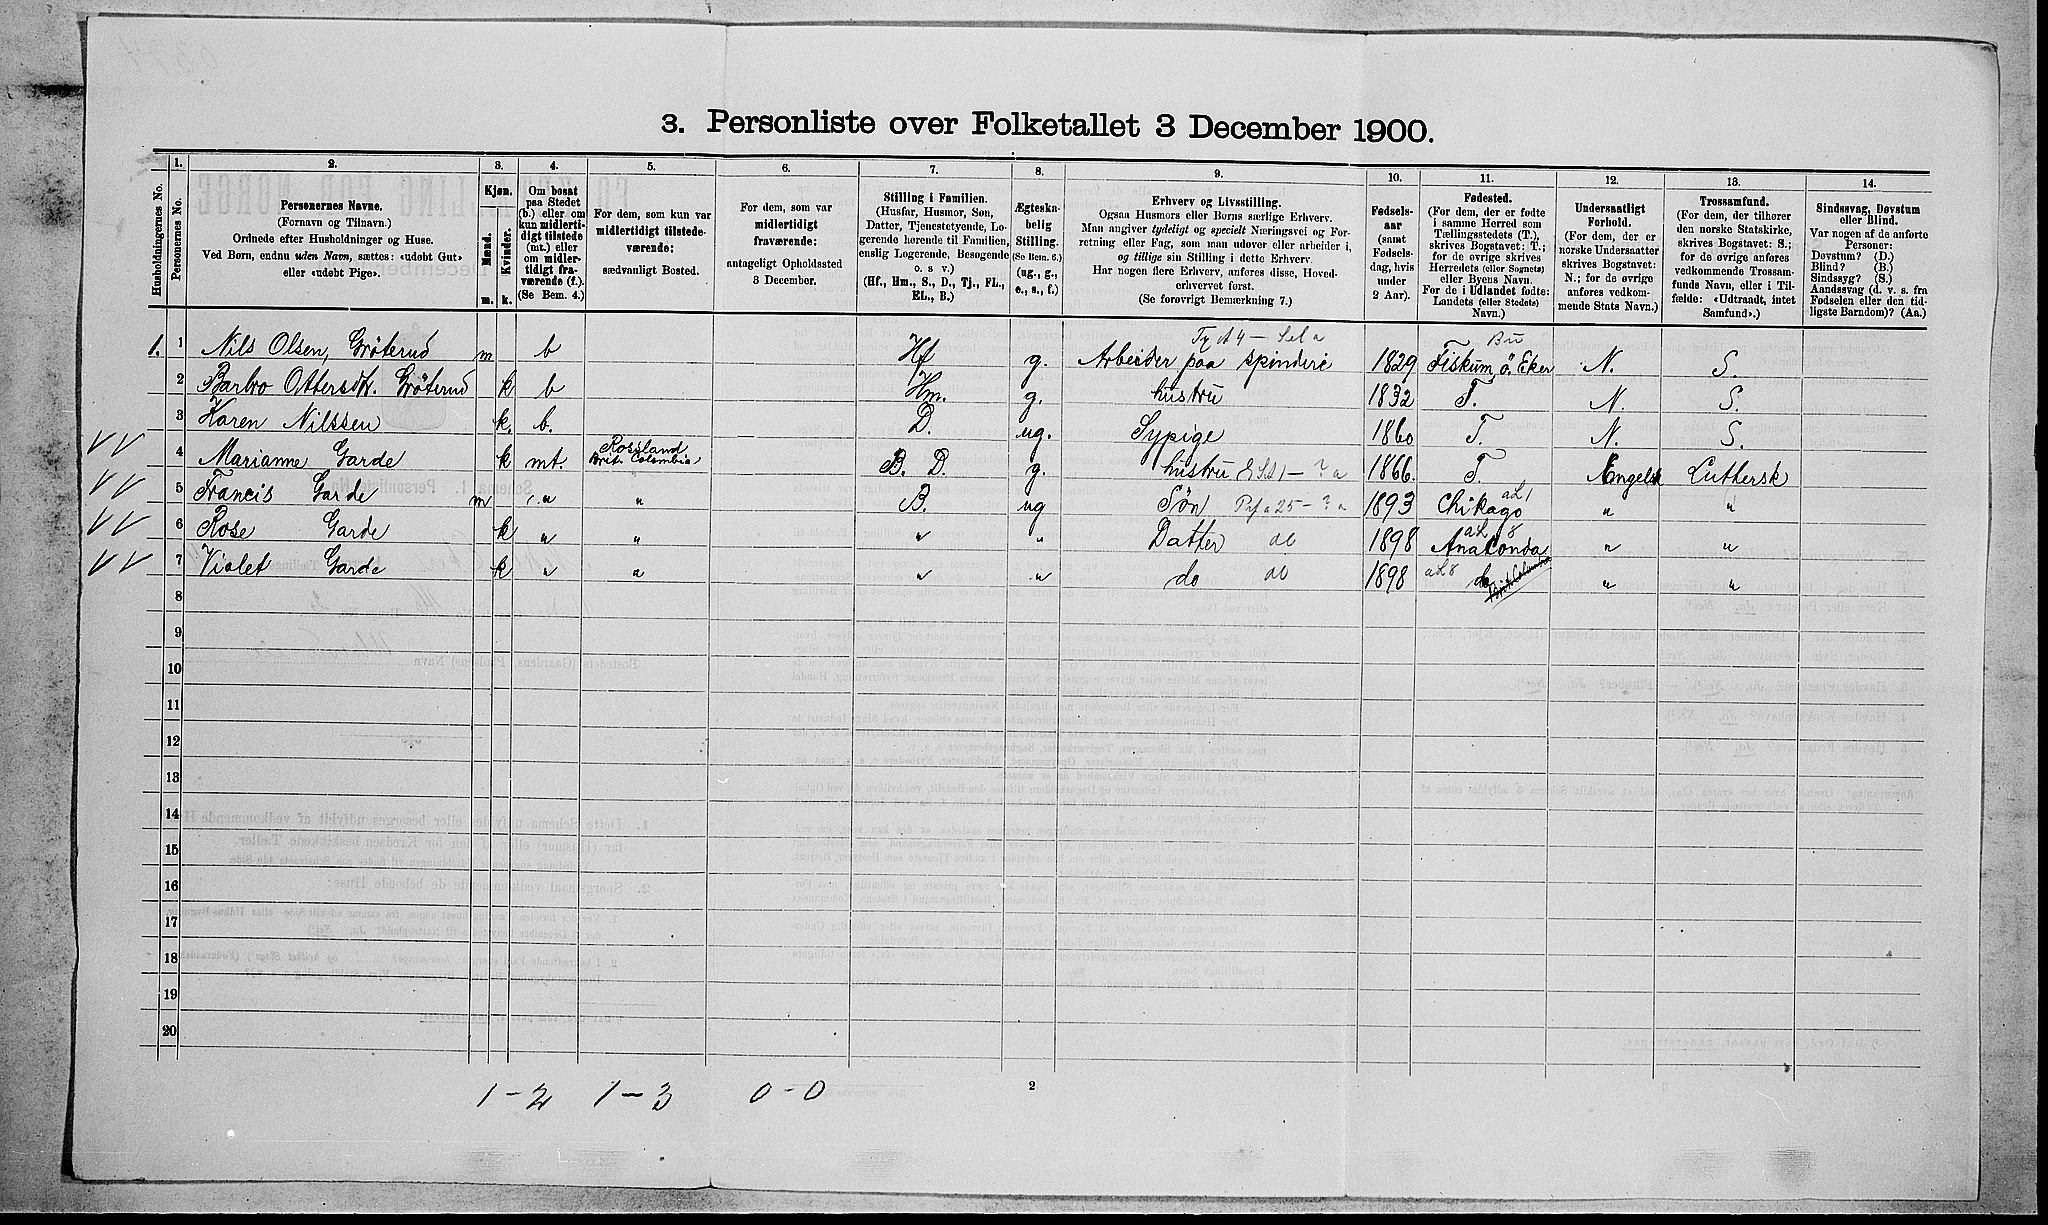 3. Personliste over Folketallet 3 December 1900.
1. 2. 3. 4. 5. 6. 7. 8. 9. 10. 11. 12. 13. 14.
Husholdningernes No.
Personernes No.
Personernes Navne.
(Fornavn og Tilnavn.)
Ordnede efter Husholdninger og Huse.
Ved Børn, endnu uden Navn, sættes: «udebt Gut»
eller «udebt Pige».
Kjøn.
Mænd.
Kvinder.
m. k.
Om bosat
paa Stedet
(b.) eller om
kun midlerti-
digt tilstede
(mt.) eller
om midler-
tidigt fra-
værende (f.).
(Se Bem. 4.)
For dem, som kun var
midlertidigt tilstede-
værende:
sædvanligt Bosted.
For dem, som var
midlertidigt
fraværende:
antageligt Opholdssted
3 December.
Stilling i Familien.
(Husfar, Husmor, Søn,
Datter, Tjenestetyende, Lo-
gerende hørende til Familien,
enslig Logerende, Besøgende
o. s. v.)
(Hf., Hm., S., D., Tj., FL.,
EL., B.)
Ægteska-
belig
Stilling.
(Se Bem. 6.)
(ug., g.,
e., s., f.)
Erhverv og Livsstilling.
Ogsaa Husmors eller Børns særlige Erhverv.
Man angiver tydeligt og specielt Næringsvei og For-
retning eller Fag, som man udover eller arbeider i,
og tillige sin Stilling i dette Erhverv.
Har nogen flere Erhverv, anføres disse, Hoved-
erhvervet først.
(Se forøvrigt Bemærkning 7.)
Fødsels-
aar
(samt
Fødsels-
dag, hvis
under
2 Aar).
Fødested.
(For dem, der er fødte
i samme Herred som
Tællingsstedets (T.),
skrives Bogstavet: T.;
for de øvrige skrives
Herredets (eller Sognets)
eller Byens Navn.
For de i Udlandet fødte:
Landets (eller Stedets)
Navn.)
Undersaatligt
Forhold.
(For dem, der er
norske Undersaatter
skrives Bogstavet:
N.; for de øvrige
anføres vedkom-
mende Stats Navn.)
Trossamfund.
(For dem, der tilhører
den norske Statskirke,
skrives Bogstavet: S.;
for de øvrige anføres
vedkommende Trossam-
funds Navn, eller i Til-
fælde: «Udtraadt, intet
Samfund».)
Sindssvag, Døvstum
eller Blind.
Var nogen af de anførte
Personer:
Døvstum? (D.)
Blind? (B.)
Sindssyg? (S.)
Aandssvag (d. v. s. fra
Fødselen eller den tid-
ligste Barndom)? (Aa.)
1. 1 Nils Olsen, Gröterud m b Hf g. Arbeider paa spinderi 1829 Fiskum, ö. Eker N. S.
2 Barbro Ottersdtr. Gröterud k b Hm. g. hustru 1832 T. N. S.
3 Karen Nilssen k. b. D. ug. Sypige 1860 T. N. S.
4 Marianne Garde k mt. Rossland Brit. Colombia B. D. g. hustru 1866. T. Engelsk Luthersk
5 Francis Garde m " " B. ug Søn 1893 Chikago " "
6 Rose Garde k " " " " Datter do 1898 Anakonda " "
7 Violet Garde k " " " " do do 1898 do Brit. Colombia " "
8
9
10
11
12
13
14
15
16
17
18
19
20
1-2 1-3 0-0
2